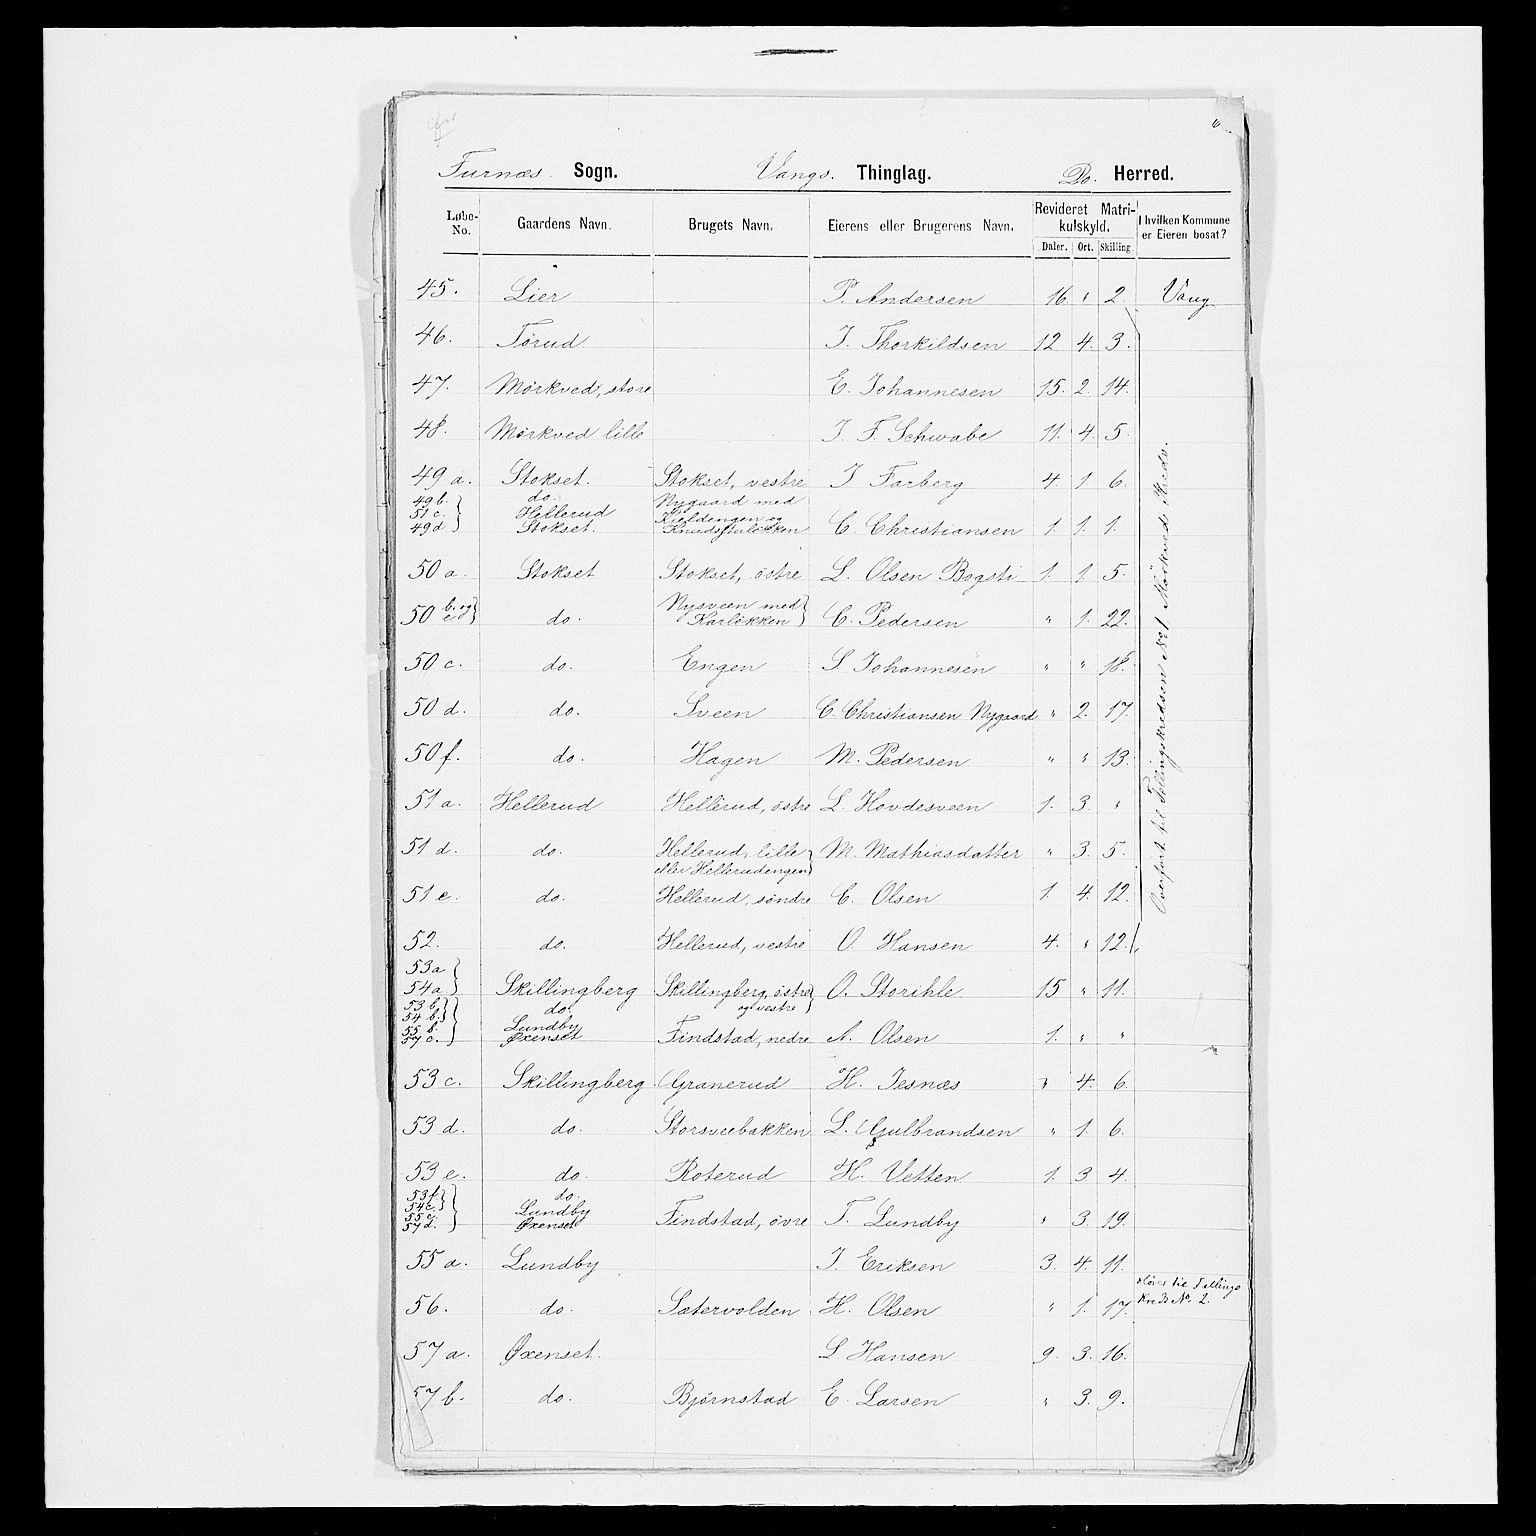 Furnæs. Sogn. Vangs. Thinglag. Do. Herred.
Løbe-No. Gaardens Navn. Brugets Navn. Eierens eller Brugerens Navn. Revideret Matrikulskyld. Daler. Ort. Skilling. I hvilken Kommune er Eieren bosat?
45. Lier P. Andersen 16 " 2. Vang
46. Tørud J. Thorkildsen 12 4. 3.
47. Mørkved, store E. Johannesen 15. 2. 14.
48. Mørkved lille J. F. Schwabe 11. 4. 5.
49 a. Stokset. Stokset, vestre J Farberg 4. 1 6.
49 b. do. Nygaard med
51 c. Hellerud Kjeldengen og
49 d Stokset. Knudsstuløkken C. Christiansen 1. 1. 1.
50 a. Stokset Stokset, östre L. Olsen Bogsti 1. 1. 5.
50 b. og e. do. Nysveen med Karløkken C. Pedersen " 1. 22.
50 c. do. Engen S. Johannesen " " 18.
50 d. do. Sveen C. Christiansen Nygaard " 2. 17.
50 f. do. Hagen M. Pedersen " " 13.
51 a. Hellerud Hellerud, östre L. Hovdesveen 1. 3. "
51 d. do. Hellerud, lille M. Mathiasdatter " 3. 5.
eller Hellerudengen
51 e. do. Hellerud, søndre C. Olsen 1. 4. 12.
52. do. Hellerud, vestre O. Hansen 4. " 12.
53 a
54 a Skillingberg Skillingberg, östre O. Storihle 15 " 11.
53 b. do. og vestre
54 b.
55 b. Lundby
57 c. Øxenset Findstad, nedre A. Olsen 1. " "
53 c. Skillingberg Granerud H. Jesnæs " 4. 6.
53 d. do. Storsveebakken L. Gulbrandsen " 1. 6.
53 e. do. Roterud H. Vetten 1. 3 4.
53 f. do.
54 c. Lundby
55 c.
57 d. Øxenset Findstad, övre T. Lundby " 3. 19.
55 a. Lundby J. Eriksen 3. 4. 11.
56. do. Sætervolden H. Olsen " 1. 17. Hører til Tællings Kreds No 2.
57 a. Øxenset. L Hansen 9. 3. 16.
57 b. do. Bjørnstad E. Larsen " 3. 9.
Overført til Tællingskredsen No 1 Mørkved Kreds.